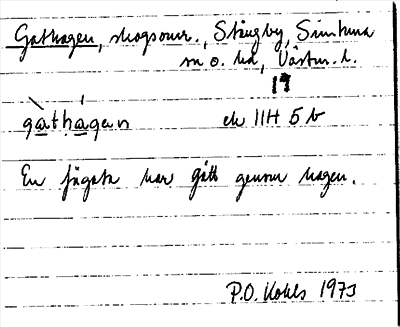 Gathagen, skogsomr., Stängby, Simtuna
sn o. hd, Västm. l.
19
gàthágen ek 11H 5b
En fägata har gått genom hagen.
P.O. Kohls 1973